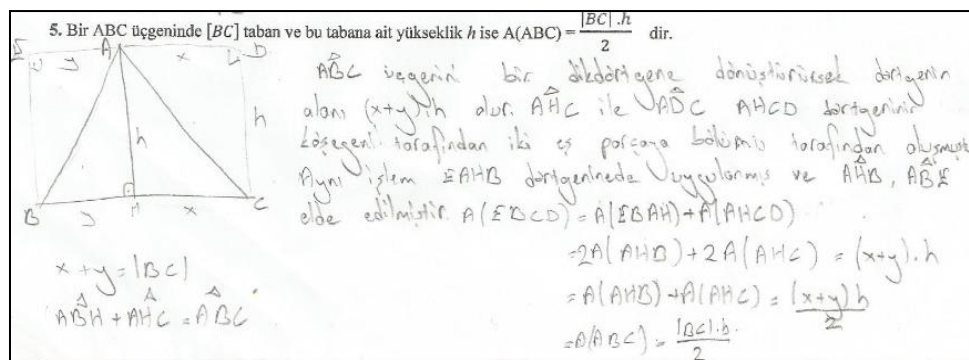 5. Bir ABC üçgeninde [BC] taban ve bu tabana ait yükseklik h ise A(ABC) = |BC| . h / 2 dir.
E y A x D
h h
B y H x C
ABC üçgenini bir dikdörtgene dönüştürürsek dörtgenin
alanı (x+y).h olur. AHC ile ADC AHCD dörtgeninin
köşegeni tarafından iki eş parçaya bölümü tarafından oluşmuştur
Aynı işlem EAHB dörtgeninede uygulanmış ve AHB, ABE
elde edilmiştir. A(EBCD) = A(EBAH) + A(AHCD)
= 2A(AHB) + 2A(AHC) = (x+y).h
= A(AHB) + A(AHC) = (x+y)h / 2
= A(ABC) = |BC|.h / 2
x + y = |BC|
ABH + AHC = ABC